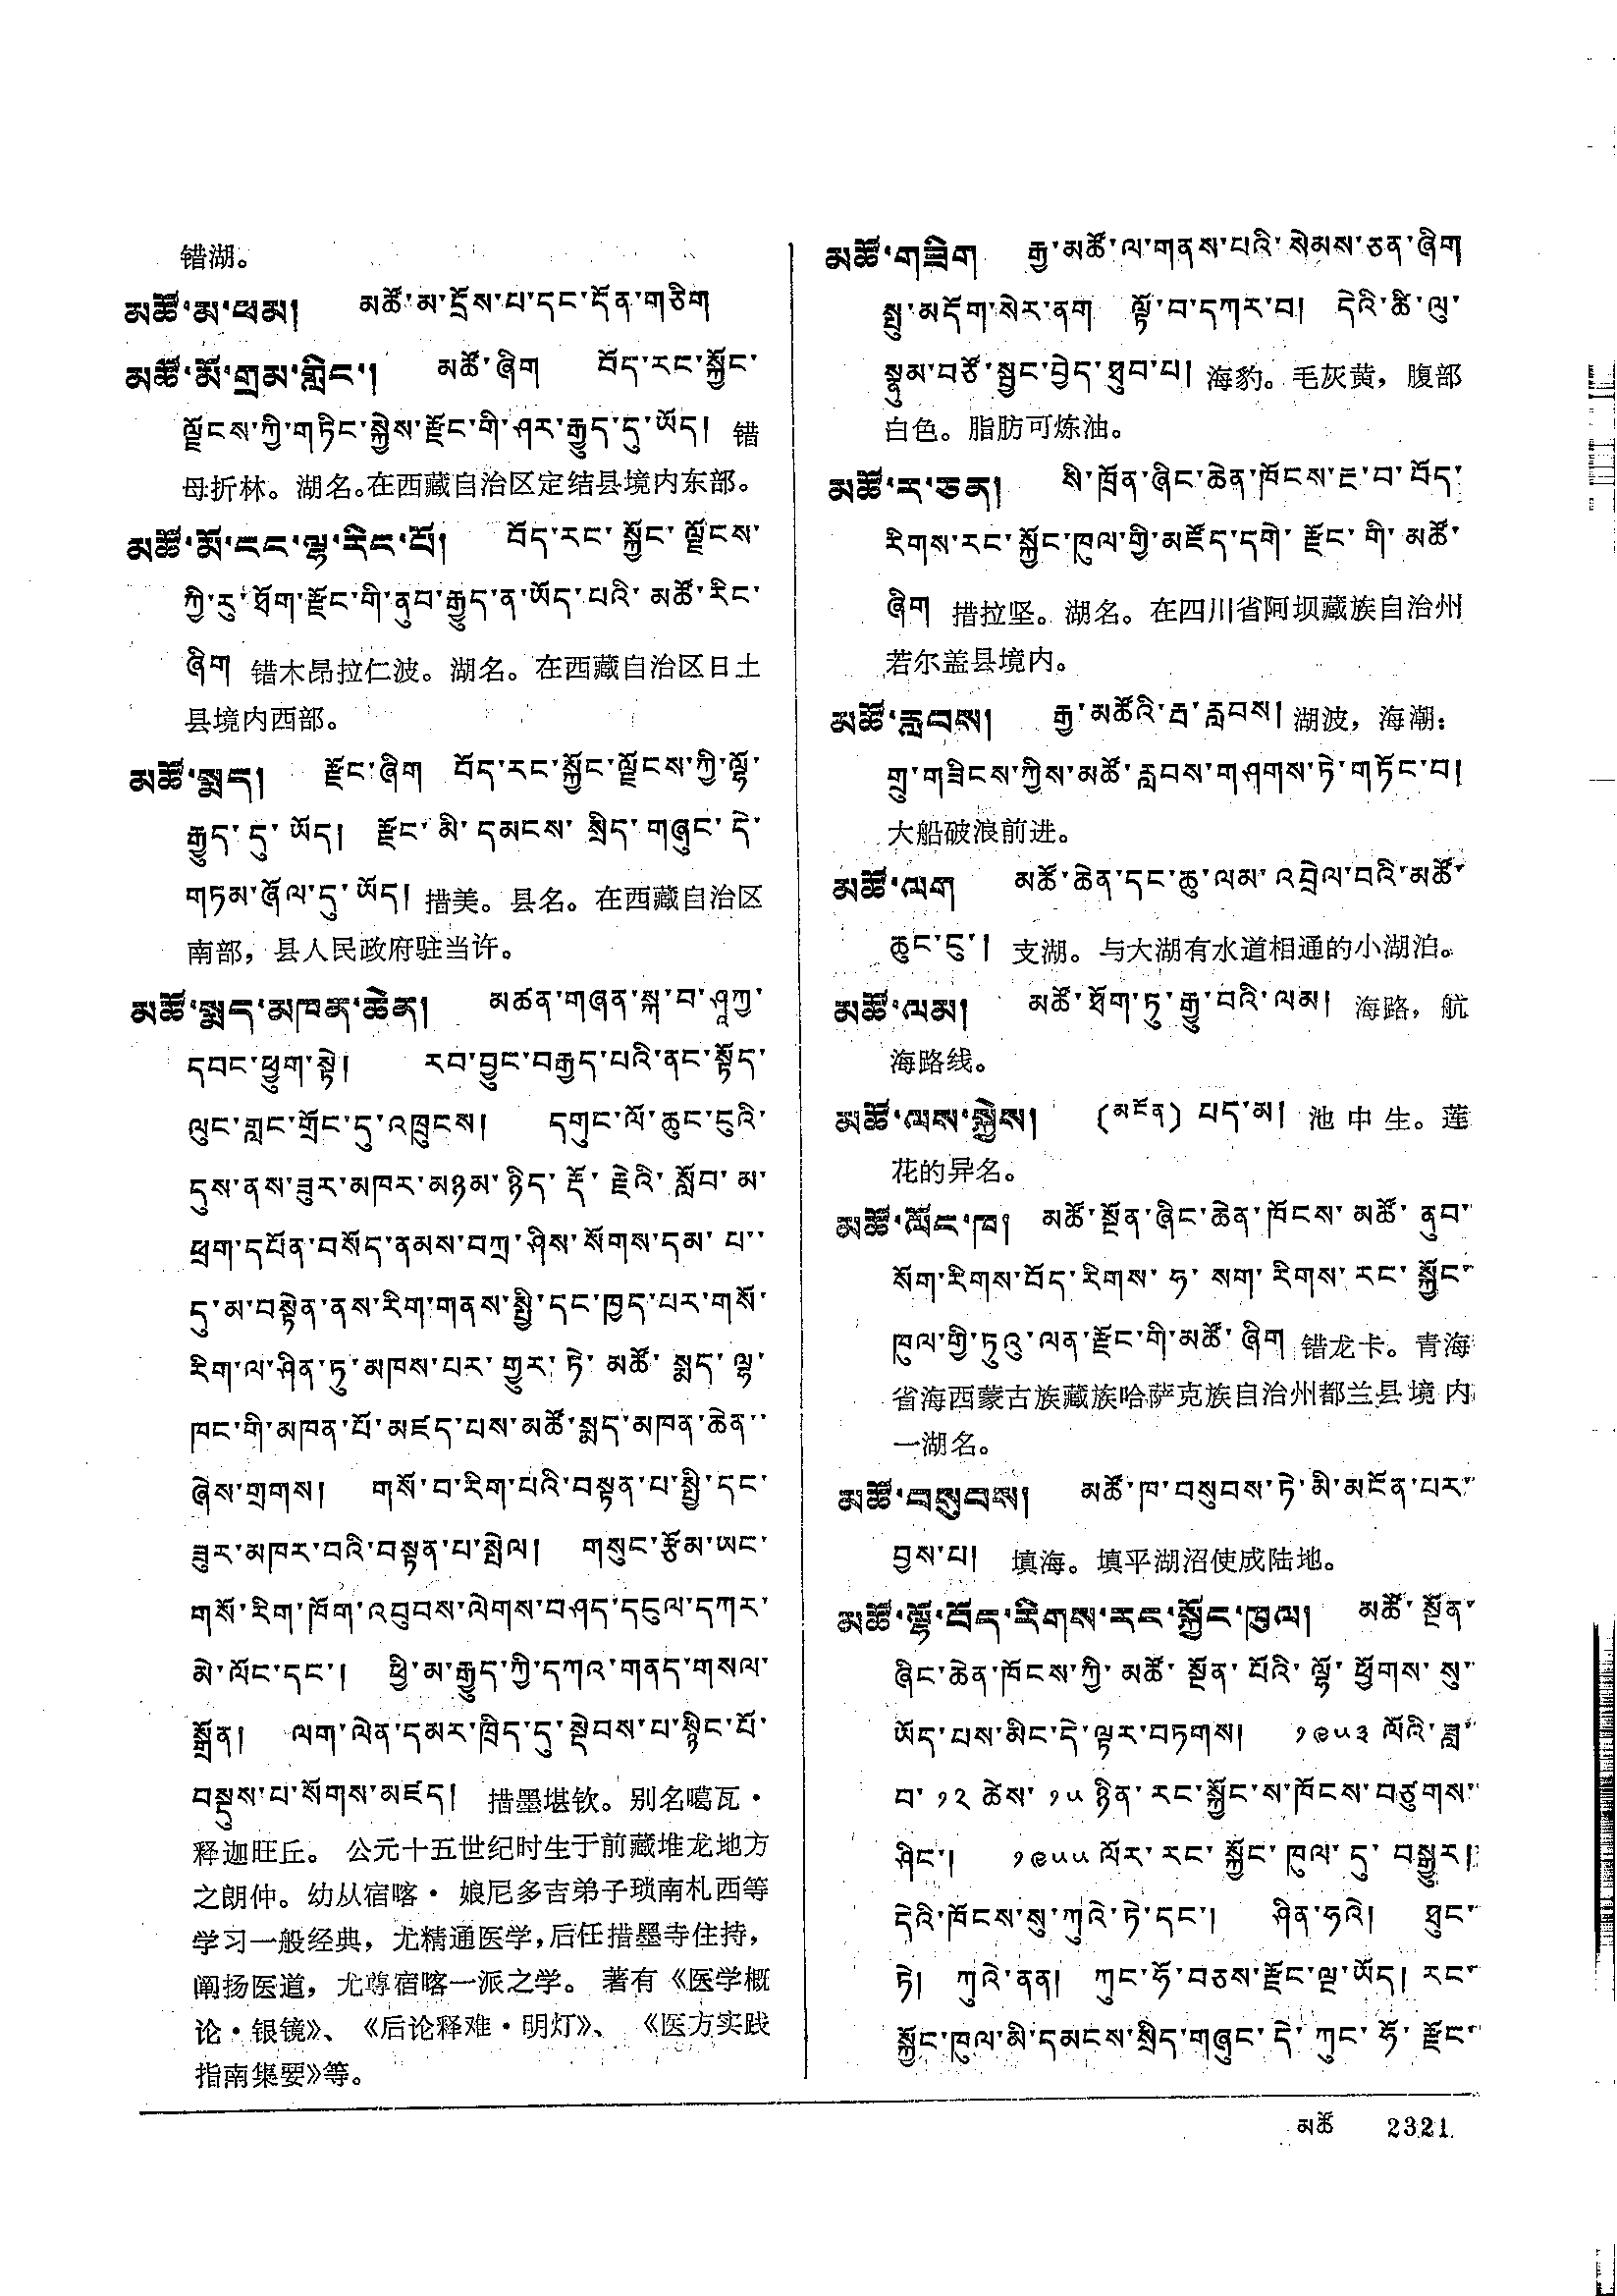 错湖。
མཚོ་མ་ཕམ། མཚོ་མ་དྲོས་པ་དང་དོན་གཅིག
མཚོ་མོ་གྲམ་གླིང་། མཚོ་ཞིག བོད་རང་སྐྱོང་
ལྗོངས་ཀྱི་གཏིང་སྐྱེས་རྫོང་གི་ཤར་རྒྱུད་དུ་ཡོད། 错
母折林。湖名。在西藏自治区定结县境内东部。
མཚོ་མོ་ངང་ལྷ་རིང་པོ། བོད་རང་སྐྱོང་ལྗོངས་
ཀྱི་རུ་ཐོག་རྫོང་གི་ནུབ་རྒྱུད་ན་ཡོད་པའི་མཚོ་རིང་
ཞིག 错木昂拉仁波。湖名。在西藏自治区日土
县境内西部。
མཚོ་སྨད། རྫོང་ཞིག བོད་རང་སྐྱོང་ལྗོངས་ཀྱི་ལྷོ་
རྒྱུད་དུ་ཡོད། རྫོང་མི་དམངས་སྲིད་གཞུང་དེ་
གཏམ་ཞོལ་དུ་ཡོད། 措美。县名。在西藏自治区
南部，县人民政府驻当许。
མཚོ་སྨད་མཁན་ཆེན། མཚན་གཞན་སྐ་བ་ཤཱཀྱ་
དབང་ཕྱུག་སྟེ། རབ་བྱུང་བརྒྱད་པའི་ནང་སྟོད་
ལུང་གླང་གྲོང་དུ་འཁྲུངས། དགུང་ལོ་ཆུང་ངུའི་
དུས་ནས་ཟུར་མཁར་མཉམ་ཉིད་རྡོ་རྗེའི་སློབ་མ་
ཕྲག་དཔོན་བསོད་ནམས་བཀྲ་ཤིས་སོགས་དམ་པ་
དུ་མ་བསྟེན་ནས་རིག་གནས་སྤྱི་དང་ཁྱད་པར་གསོ་
རིག་ལ་ཤིན་ཏུ་མཁས་པར་གྱུར་ཏེ་མཚོ་སྨད་ལྷ་
ཁང་གི་མཁན་པོ་མཛད་པས་མཚོ་སྨད་མཁན་ཆེན་
ཞེས་གྲགས། གསོ་བ་རིག་པའི་བསྟན་པ་སྤྱི་དང་
ཟུར་མཁར་བའི་བསྟན་པ་སྤེལ། གསུང་རྩོམ་ཡང་
གསོ་རིག་ཁོག་འབུབས་ལེགས་བཤད་དངུལ་དཀར་
མེ་ལོང་དང་། ཕྱི་མ་རྒྱུད་ཀྱི་དཀའ་གནད་གསལ་
སྒྲོན། ལག་ལེན་དམར་ཁྲིད་དུ་སྡེབས་པ་སྙིང་པོ་
བསྡུས་པ་སོགས་མཛད། 措墨堪钦。别名噶瓦·
释迦旺丘。公元十五世纪时生于前藏堆龙地方
之朗仲。幼从宿喀·娘尼多吉弟子琐南札西等
学习一般经典，尤精通医学，后任措墨寺住持，
阐扬医道，尤尊宿喀一派之学。著有《医学概
论·银镜》、《后论释难·明灯》、《医方实践
指南集要》等。
མཚོ་གཟིག རྒྱ་མཚོ་ལ་གནས་པའི་སེམས་ཅན་ཞིག
སྤུ་མདོག་སེར་ནག ལྟོ་བ་དཀར་བ། དེའི་ཚི་ལུ་
སྣུམ་བཙོ་སྦྱང་བྱེད་ཐུབ་པ། 海豹。毛灰黄，腹部
白色。脂肪可炼油。
མཚོ་ར་ཅན། སི་ཁྲོན་ཞིང་ཆེན་ཁོངས་ཇ་བ་བོད་
རིགས་རང་སྐྱོང་ཁུལ་གྱི་མཛོད་དགེ་རྫོང་གི་མཚོ་
ཞིག 措拉坚。湖名。在四川省阿坝藏族自治州
若尔盖县境内。
མཚོ་རླབས། རྒྱ་མཚོའི་རྦ་རླབས། 湖波，海潮：
གྲུ་གཟིངས་ཀྱིས་མཚོ་རླབས་གཤགས་ཏེ་གཏོང་བ།
大船破浪前进。
མཚོ་ལག མཚོ་ཆེན་དང་ཆུ་ལམ་འབྲེལ་བའི་མཚོ་
ཆུང་ངུ་། 支湖。与大湖有水道相通的小湖泊。
མཚོ་ལམ། མཚོ་ཐོག་ཏུ་རྒྱུ་བའི་ལམ། 海路，航
海路线。
མཚོ་ལས་སྐྱེས། (མངོན) པད་མ། 池中生。莲
花的异名。
མཚོ་ལོང་ཁ། མཚོ་སྔོན་ཞིང་ཆེན་ཁོངས་མཚོ་ནུབ་
སོག་རིགས་བོད་རིགས་ཧ་སག་རིགས་རང་སྐྱོང་
ཁུལ་གྱི་ཏུའུ་ལན་རྫོང་གི་མཚོ་ཞིག 错龙卡。青海
省海西蒙古族藏族哈萨克族自治州都兰县境内
一湖名。
མཚོ་བསུབས། མཚོ་ཁ་བསུབས་ཏེ་མི་མངོན་པར་
བྱས་པ། 填海。填平湖沼使成陆地。
མཚོ་ལྷོ་བོད་རིགས་རང་སྐྱོང་ཁུལ། མཚོ་སྔོན་
ཞིང་ཆེན་ཁོངས་ཀྱི་མཚོ་སྔོན་པོའི་ལྷོ་ཕྱོགས་སུ་
ཡོད་པས་མིང་དེ་ལྟར་བཏགས། ༡༩༥༣ ལོའི་ཟླ་
བ་ ༡༢ ཚེས་ ༡༥ ཉིན་རང་སྐྱོང་ས་ཁོངས་བཙུགས་
ཤིང་། ༡༩༥༥ ལོར་རང་སྐྱོང་ཁུལ་དུ་བསྒྱུར།
དེའི་ཁོངས་སུ་ཀུའེ་ཏེ་དང་། ཤིན་ཧའེ། ཐུང་
ཏེ། ཀུའེ་ནན། ཀུང་ཧོ་བཅས་རྫོང་ལྔ་ཡོད། རང་
སྐྱོང་ཁུལ་མི་དམངས་སྲིད་གཞུང་དེ་ཀུང་ཧོ་རྫོང་
མཚོ 2321